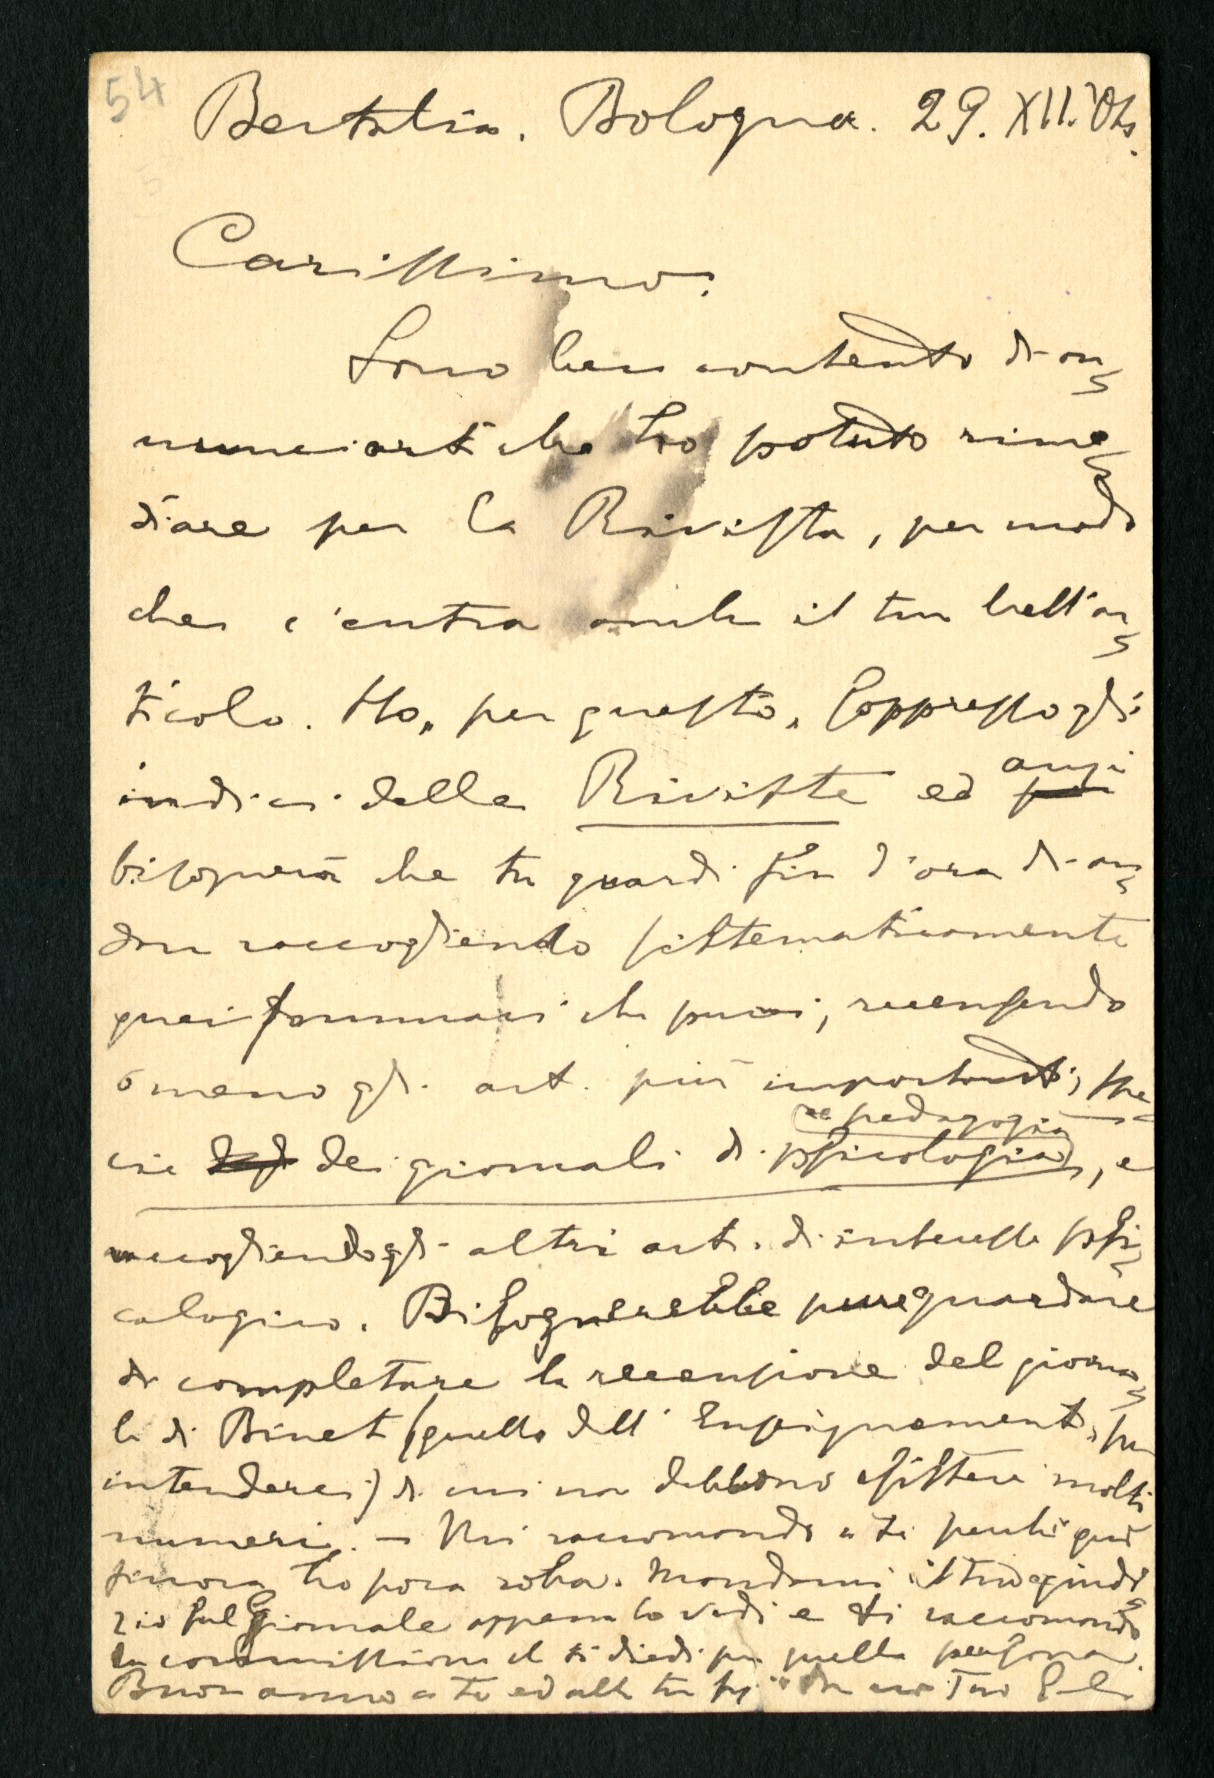 54
Bertalia. Bologna. 29. XII. '04.
Carissimo.
Sono ben contento di an
nunciarti che ho potuto rime
diare per la Rivista, per modo
che c'entra anche il tuo bell'ar
ticolo. Ho, per questo, soppresso gli
indici delle Riviste ed anzi
bisognerà che tu guardi fin d'ora di an
dar raccogliendo sistematicamente
quei sommari che puoi, recensendo
o meno gli art. più importanti, spe
cie dei giornali di psicologia (e pedagogia), e
raccogliendo gli altri art. di interesse psi
cologico. Bisognerebbe pure guardare
di completare la recensione del giorna
le di Binet (quello dell' Enseignement, per
intenderci) di cui non debbono esistere molti
numeri. — Mi raccomando a te perchè qui
finora ho poca roba. Mandami il tuo giudi
zio sul giornale appena lo vedi e ti raccomando
la commissione che ti diedi per quella persona.
Buon anno a te ed alla tua dal tuo